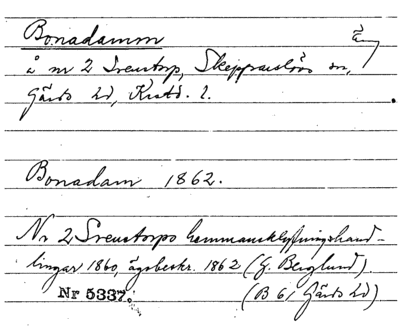 Bonadamm
å nr 2 Svenstorp, Skepparslövs sn,
Gärds hd, Krstd. l.
Bonadam 1862.
Nr 2 Svenstorps hemmansklyfningshand-
lingar 1860, ägobeskr. 1862 (G. Berglund).
Nr 5337. (B 61 Gärds hd)